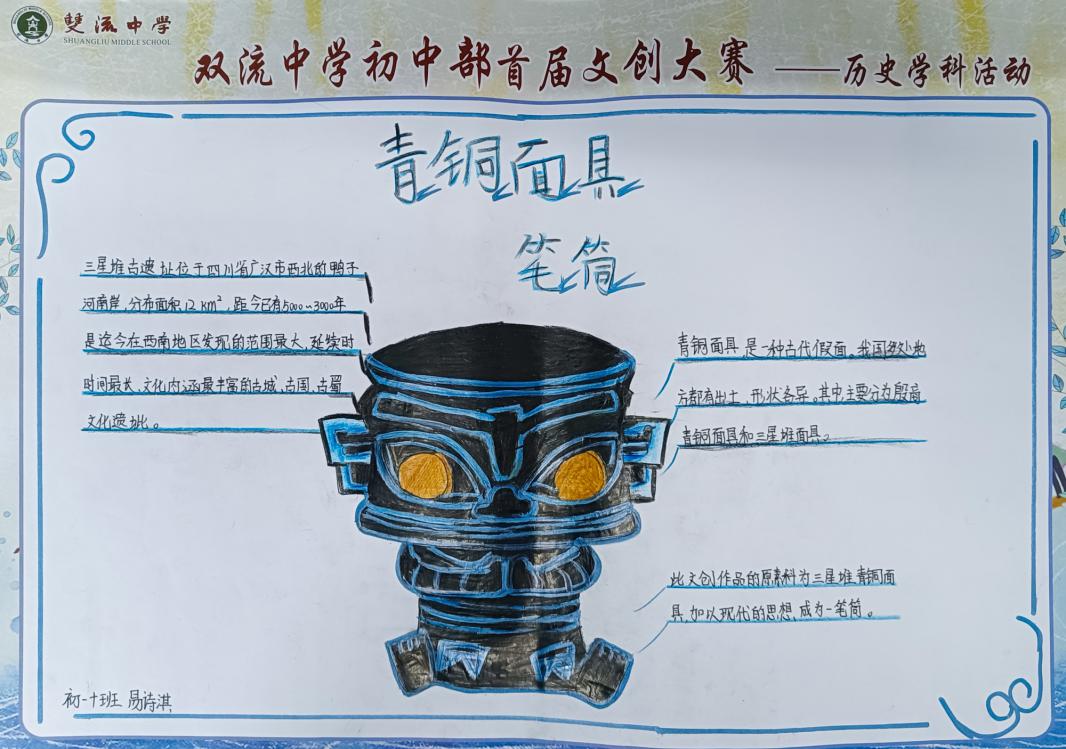 雙流中學
SHUANGLIU MIDDLE SCHOOL
双流中学初中部首届文创大赛 ——历史学科活动
青铜面具
笔筒
三星堆古遗址位于四川省广汉市西北的鸭子
河南岸,分布面积12km²,距今已有5000~3000年
是迄今在西南地区发现的范围最大,延续时
时间最长、文化内涵最丰富的古城、古国、古蜀
文化遗址。
青铜面具是一种古代假面。我国多处地
方都有出土,形状各异。其中主要分为殷商
青铜面具和三星堆面具。
此文创作品的原素料为三星堆青铜面
具,加以现代的思想,成为一笔筒。
初一十班 易诗淇